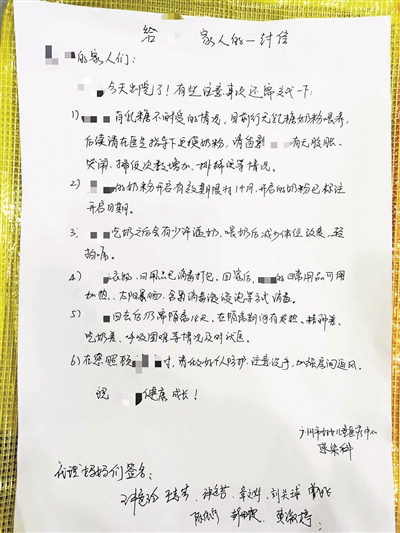 给 家人的一封信
的家人们：
今天出院了！有些注意事项还需交代一下：
1) 有乳糖不耐受的情况，目前行无乳糖奶粉喂养，
后续请在医生指导下更换奶粉，请留意 有无腹胀、
哭闹、排便次数增加、排稀便等情况。
2) 的奶粉开启有效期限为1个月，开启的奶粉已标注
开启日期。
3. 吃奶之后会有少许溢奶，喂奶后减少体位改变，轻
拍嗝。
4) 衣服、日用品已消毒打包。回家后， 的日常用品可用
加热、太阳暴晒、含氯消毒液浸泡等方式消毒。
5) 回去后仍需隔离14天，在隔离期间有发热、精神差、
吃奶差、呼吸困难等情况及时就医。
6) 在您照顾 时，请做好个人防护，注意洗手，加强房间通风。
祝 健康成长！
广州市妇女儿童医疗中心
感染科
代理妈妈们签名：